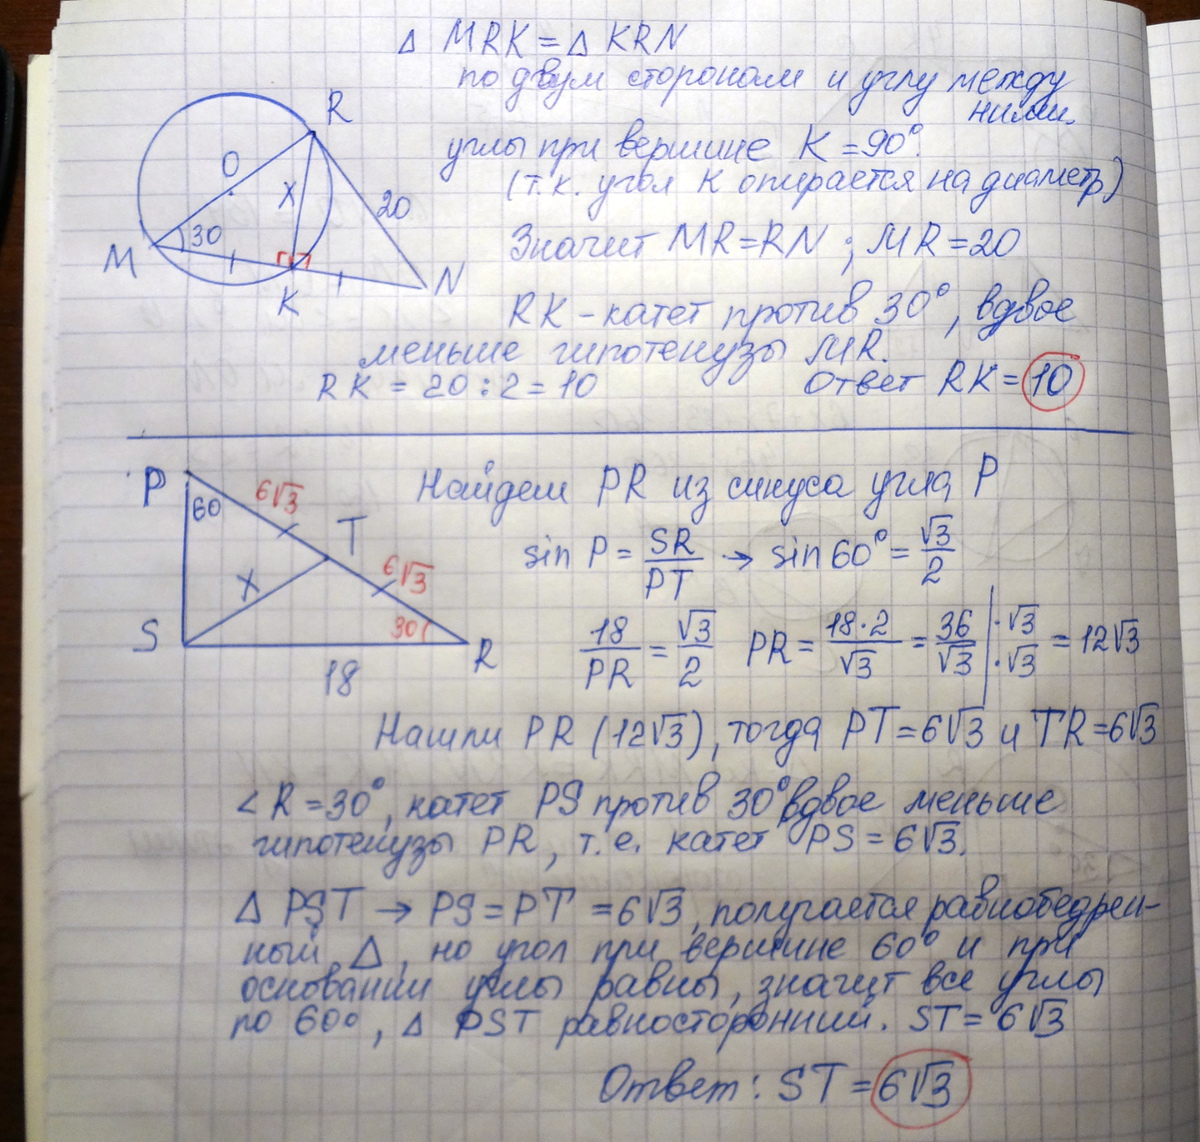 Δ MRK = Δ KRN
по двум сторонам и углу между
ними.
углы при вершине K = 90°.
(т.к. угол K опирается на диаметр)
Значит MR = RN ; MR = 20
RK – катет против 30°, вдвое
меньше гипотенузы MR.
RK = 20 : 2 = 10
Ответ RK = 10
R
O
X
20
30
M
K
N
P
60
6√3
T
6√3
X
S
30
R
18
Найдем PR из синуса угла P
sin P = SR/PT → sin 60° = √3/2
18/PR = √3/2 PR = 18·2/√3 = 36/√3 | ·√3/·√3 = 12√3
Нашли PR (12√3), тогда PT = 6√3 и TR = 6√3
∠ R = 30°, катет PS против 30° вдвое меньше
гипотенузы PR, т.е. катет PS = 6√3.
Δ PST → PS = PT = 6√3, получается равнобедрен-
ный Δ, но угол при вершине 60° и при
основании углы равны, значит все углы
по 60°, Δ PST равносторонний. ST = 6√3
Ответ: ST = 6√3